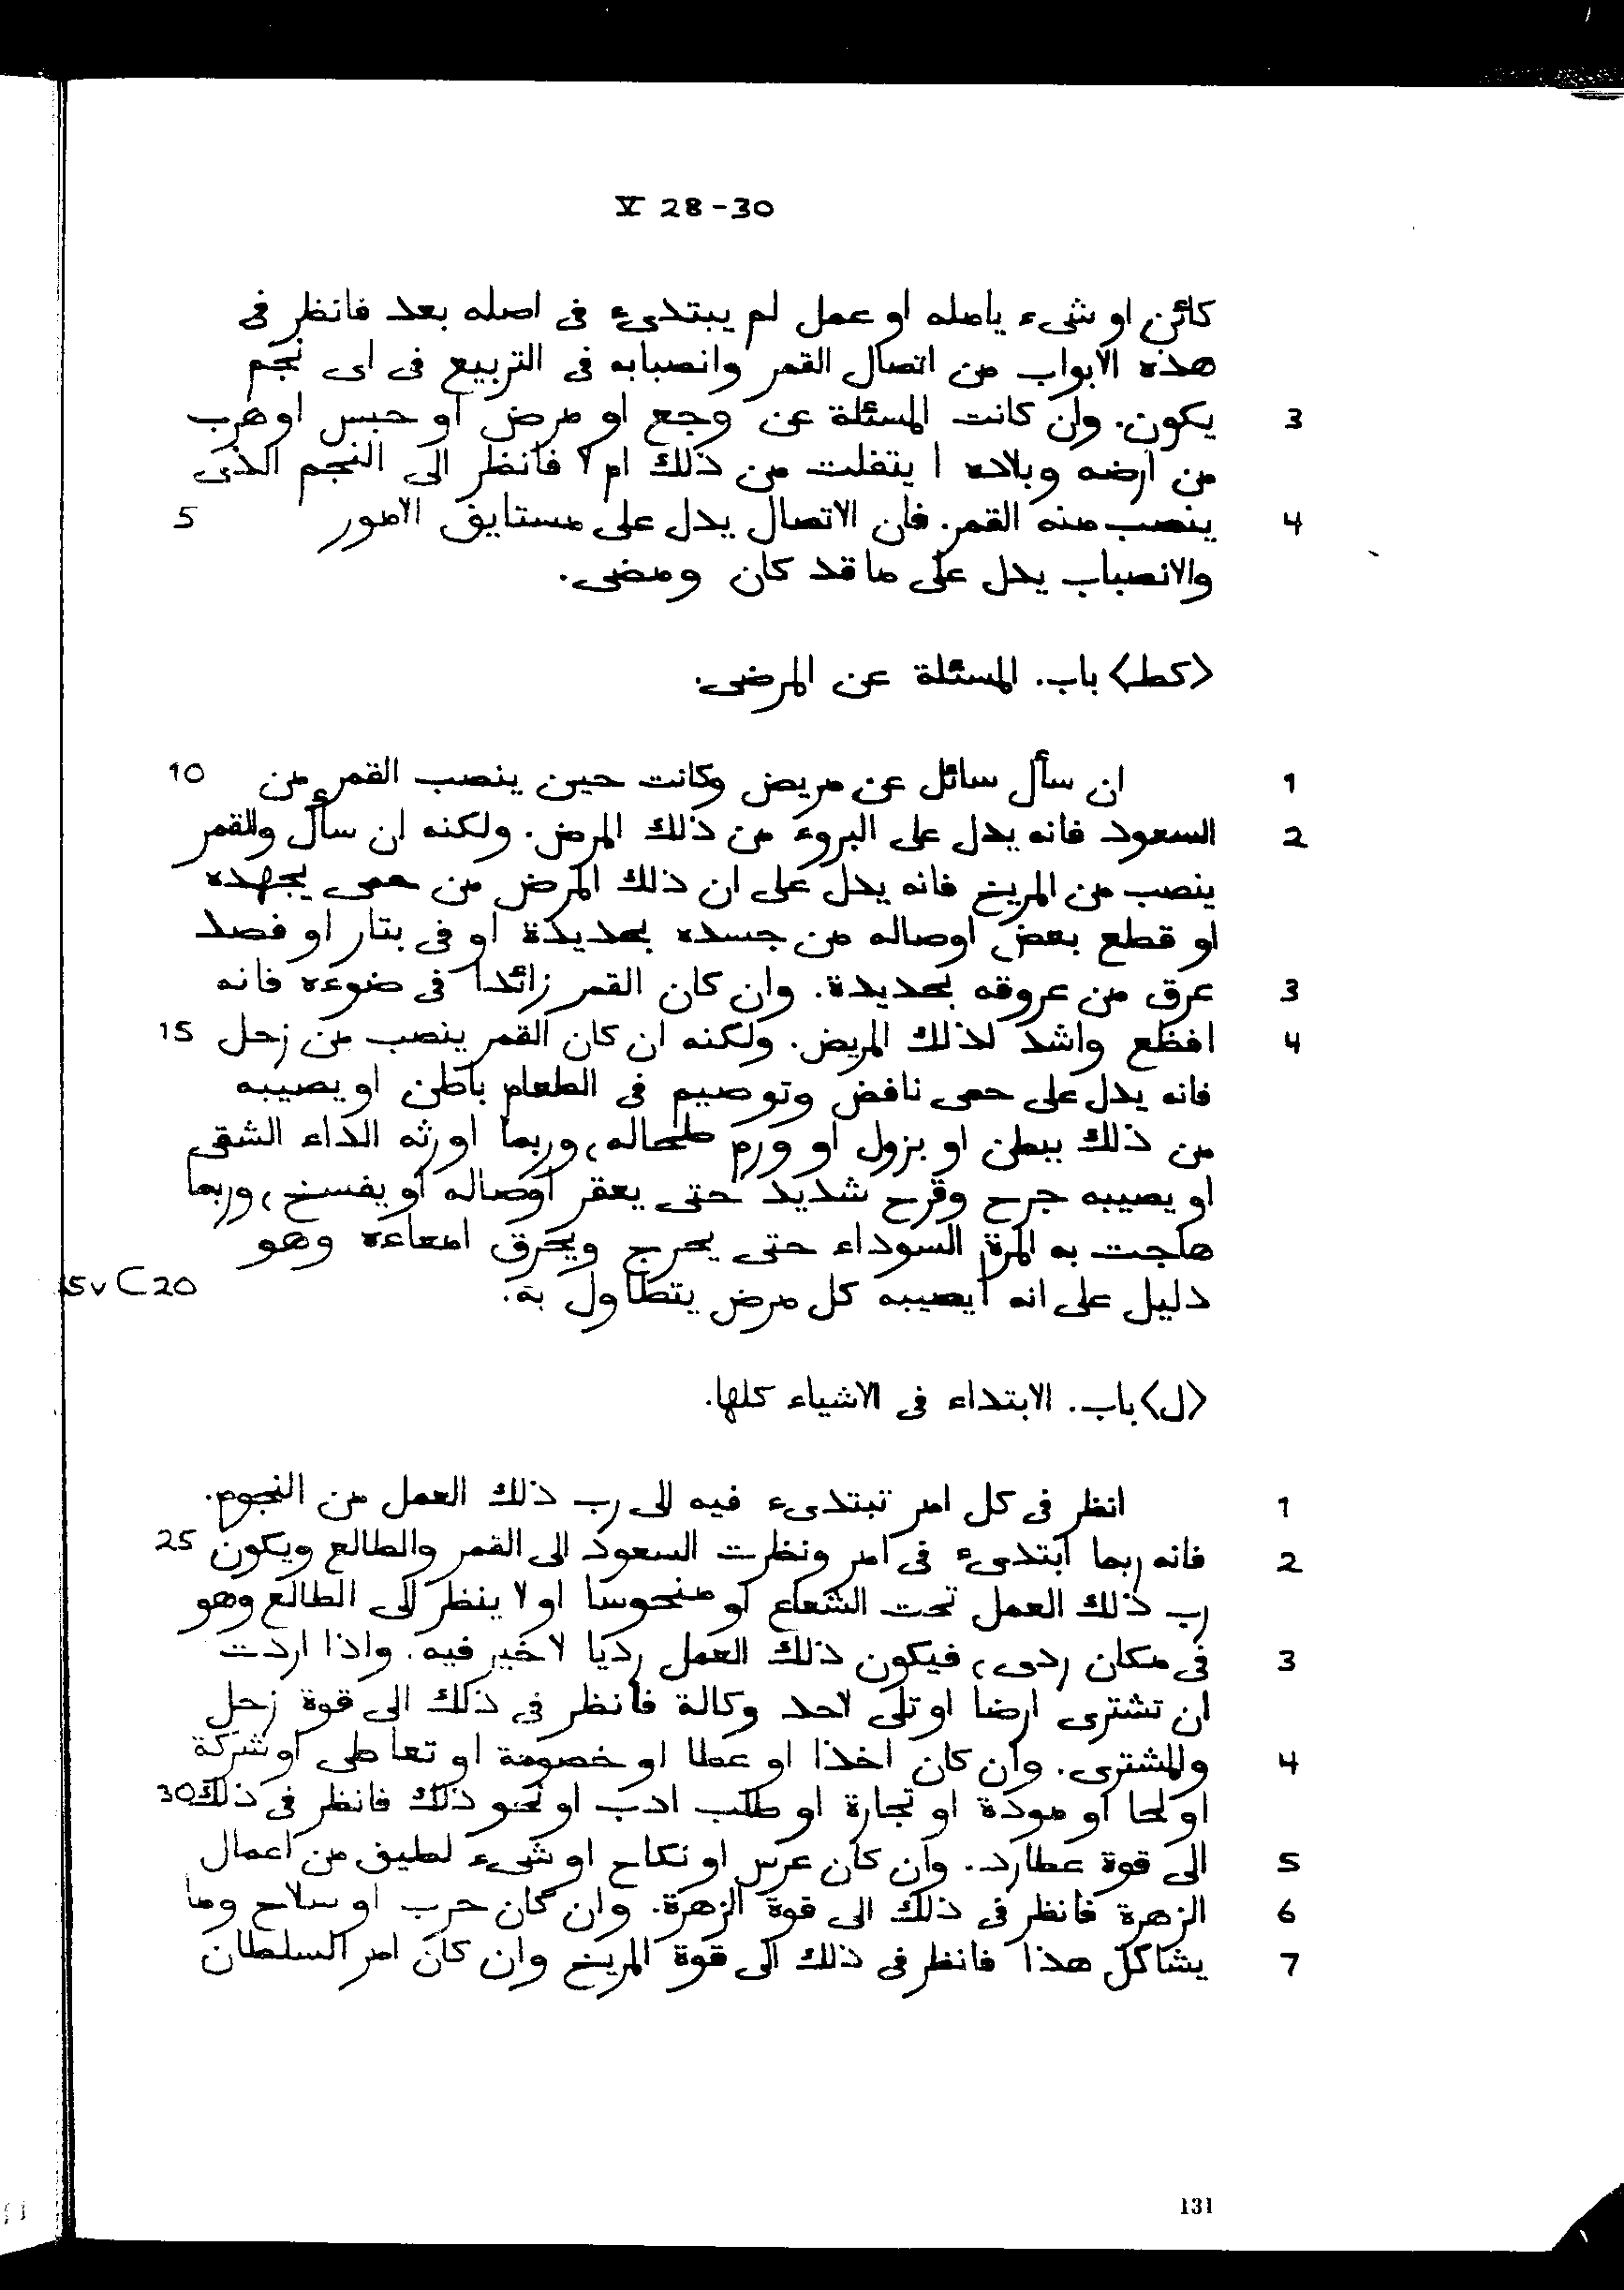 V 28-30
كائن او شىء ياصله او عمل لم يبتدىء فى اصله بعد فانظر فى
هذه الابواب من اتصال القمر وانصبابه فى التربيع فى اى نجم
3 يكون. وان كانت المسئلة عن وجع او مرض او حبس او هرب
من ارضه وبلاده ا يتفلت من ذلك ام لا فانظر الى النجم الذى
4 ينصب منه القمر. فان الاتصال يدل على مستايق الامور 5
والانصباب يدل على ما قد كان ومضى.
<كط> باب. المسئلة عن المرضى.
1 ان سأل سائل عن مريض وكانت حين ينصب القمر من 10
2 السعود فانه يدل على البروء من ذلك المرض. ولكنه ان سأل والقمر
ينصب من المريخ فانه يدل على ان ذلك المرض من حمى يجهده
او قطع بعض اوصاله من جسده بحديدة او فى بتار او فصد
3 عرق من عروقه بحديدة. وان كان القمر زائدا فى ضوءه فانه
4 افظع واشد لذلك المريض. ولكنه ان كان القمر ينصب من زحل 15
فانه يدل على حمى نافض وتوصيم فى الطعام باطن او يصيبه
من ذلك ببطن او بزول او ورم طحاله، وربما اورثه الداء الشقى
او يصيبه جرح وقرح شديد حتى يعقر اوصاله او يفسخ، وربما
هاجت به المرة السوداء حتى يحرج ويحرق امعاءه وهو
دليل على انه يصيبه كل مرض يتطاول به. 20 C 5v
<ل> باب. الابتداء فى الاشياء كلها.
1 انظر فى كل امر تبتدىء فيه الى رب ذلك العمل من النجوم.
2 فانه ربما ابتدىء فى امر ونظرت السعود الى القمر والطالع ويكون 25
رب ذلك العمل تحت الشعاع او منحوسا او لا ينظر الى الطالع وهو
3 فى مكان ردى، فيكون ذلك العمل رديا لا خير فيه. واذا اردت
ان تشترى ارضا او تلى لاحد وكالة فانظر فى ذلك الى قوة زحل
4 والمشترى. وان كان اخذا او عطا او خصومة او تعاطى او شركة
او لحا او مودة او تجارة او طلب ادب او نحو ذلك فانظر فى ذلك 30
5 الى قوة عطارد. وان كان عرس او نكاح او شىء لطيف من اعمال
6 الزهرة فانظر فى ذلك الى قوة الزهرة. وان كان حرب او سلاح وما
7 يشاكل هذا فانظر فى ذلك الى قوة المريخ وان كان امر السلطان
131